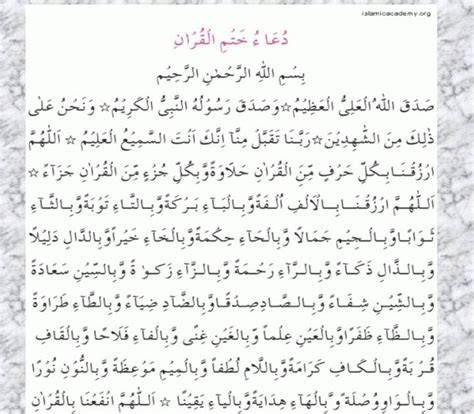 islamicacademy.org
دُعَاءُ خَتْمِ الْقُرْاٰنِ
بِسْمِ اللّٰهِ الرَّحْمٰنِ الرَّحِيْمِ
صَدَقَ اللّٰهُ الْعَلِىُّ الْعَظِيْمُ☆وَصَدَقَ رَسُوْلُهُ النَّبِىُّ الْكَرِيْمُ☆ وَنَحْنُ عَلٰى
ذٰلِكَ مِنَ الشّٰهِدِيْنَ☆رَبَّنَا تَقَبَّلْ مِنَّآ اِنَّكَ اَنْتَ السَّمِيْعُ الْعَلِيْمُ☆ اَللّٰهُمَّ
ارْزُقْنَا بِكُلِّ حَرْفٍ مِّنَ الْقُرْاٰنِ حَلَاوَةً وَّبِكُلِّ جُزْءٍ مِّنَ الْقُرْاٰنِ جَزَآءً ☆
اَللّٰهُمَّ ارْزُقْنَا بِالْاَلِفِ اُلْفَةً وَّبِالْبَآءِ بَرَكَةً وَّبِالتَّاءِ تَوْبَةً وَّبِالثَّآءِ
ثَوَابًا وَّبِالْجِيْمِ جَمَالًا وَّبِالْحَآءِ حِكْمَةً وَّبِالْخَآءِ خَيْرًا وَّبِالدَّالِ دَلِيْلًا
وَّبِالذَّالِ ذَكَآءً وَّبِالرَّآءِ رَحْمَةً وَّبِالزَّآءِ زَكٰوةً وَّبِالسِّيْنِ سَعَادَةً
وَّبِالشِّيْنِ شِفَآءً وَّبِالصَّادِ صِدْقًا وَّبِالضَّادِ ضِيَآءً وَّبِالطَّآءِ طَرَاوَةً
وَّبِالظَّآءِ ظَفَرًا وَّبِالْعَيْنِ عِلْمًا وَّبِالْغَيْنِ غِنًى وَّبِالْفَآءِ فَلَاحًا وَّبِالْقَافِ
قُرْبَةً وَّبِالْكَافِ كَرَامَةً وَّبِاللَّامِ لُطْفًا وَّبِالْمِيْمِ مَوْعِظَةً وَّبِالنُّوْنِ نُوْرًا
وَّبِالْوَاوِ وُصْلَةً وَّبِالْهَآءِ هِدَايَةً وَّبِالْيَآءِ يَقِيْنًا ☆ اَللّٰهُمَّ انْفَعْنَا بِالْقُرْاٰنِ